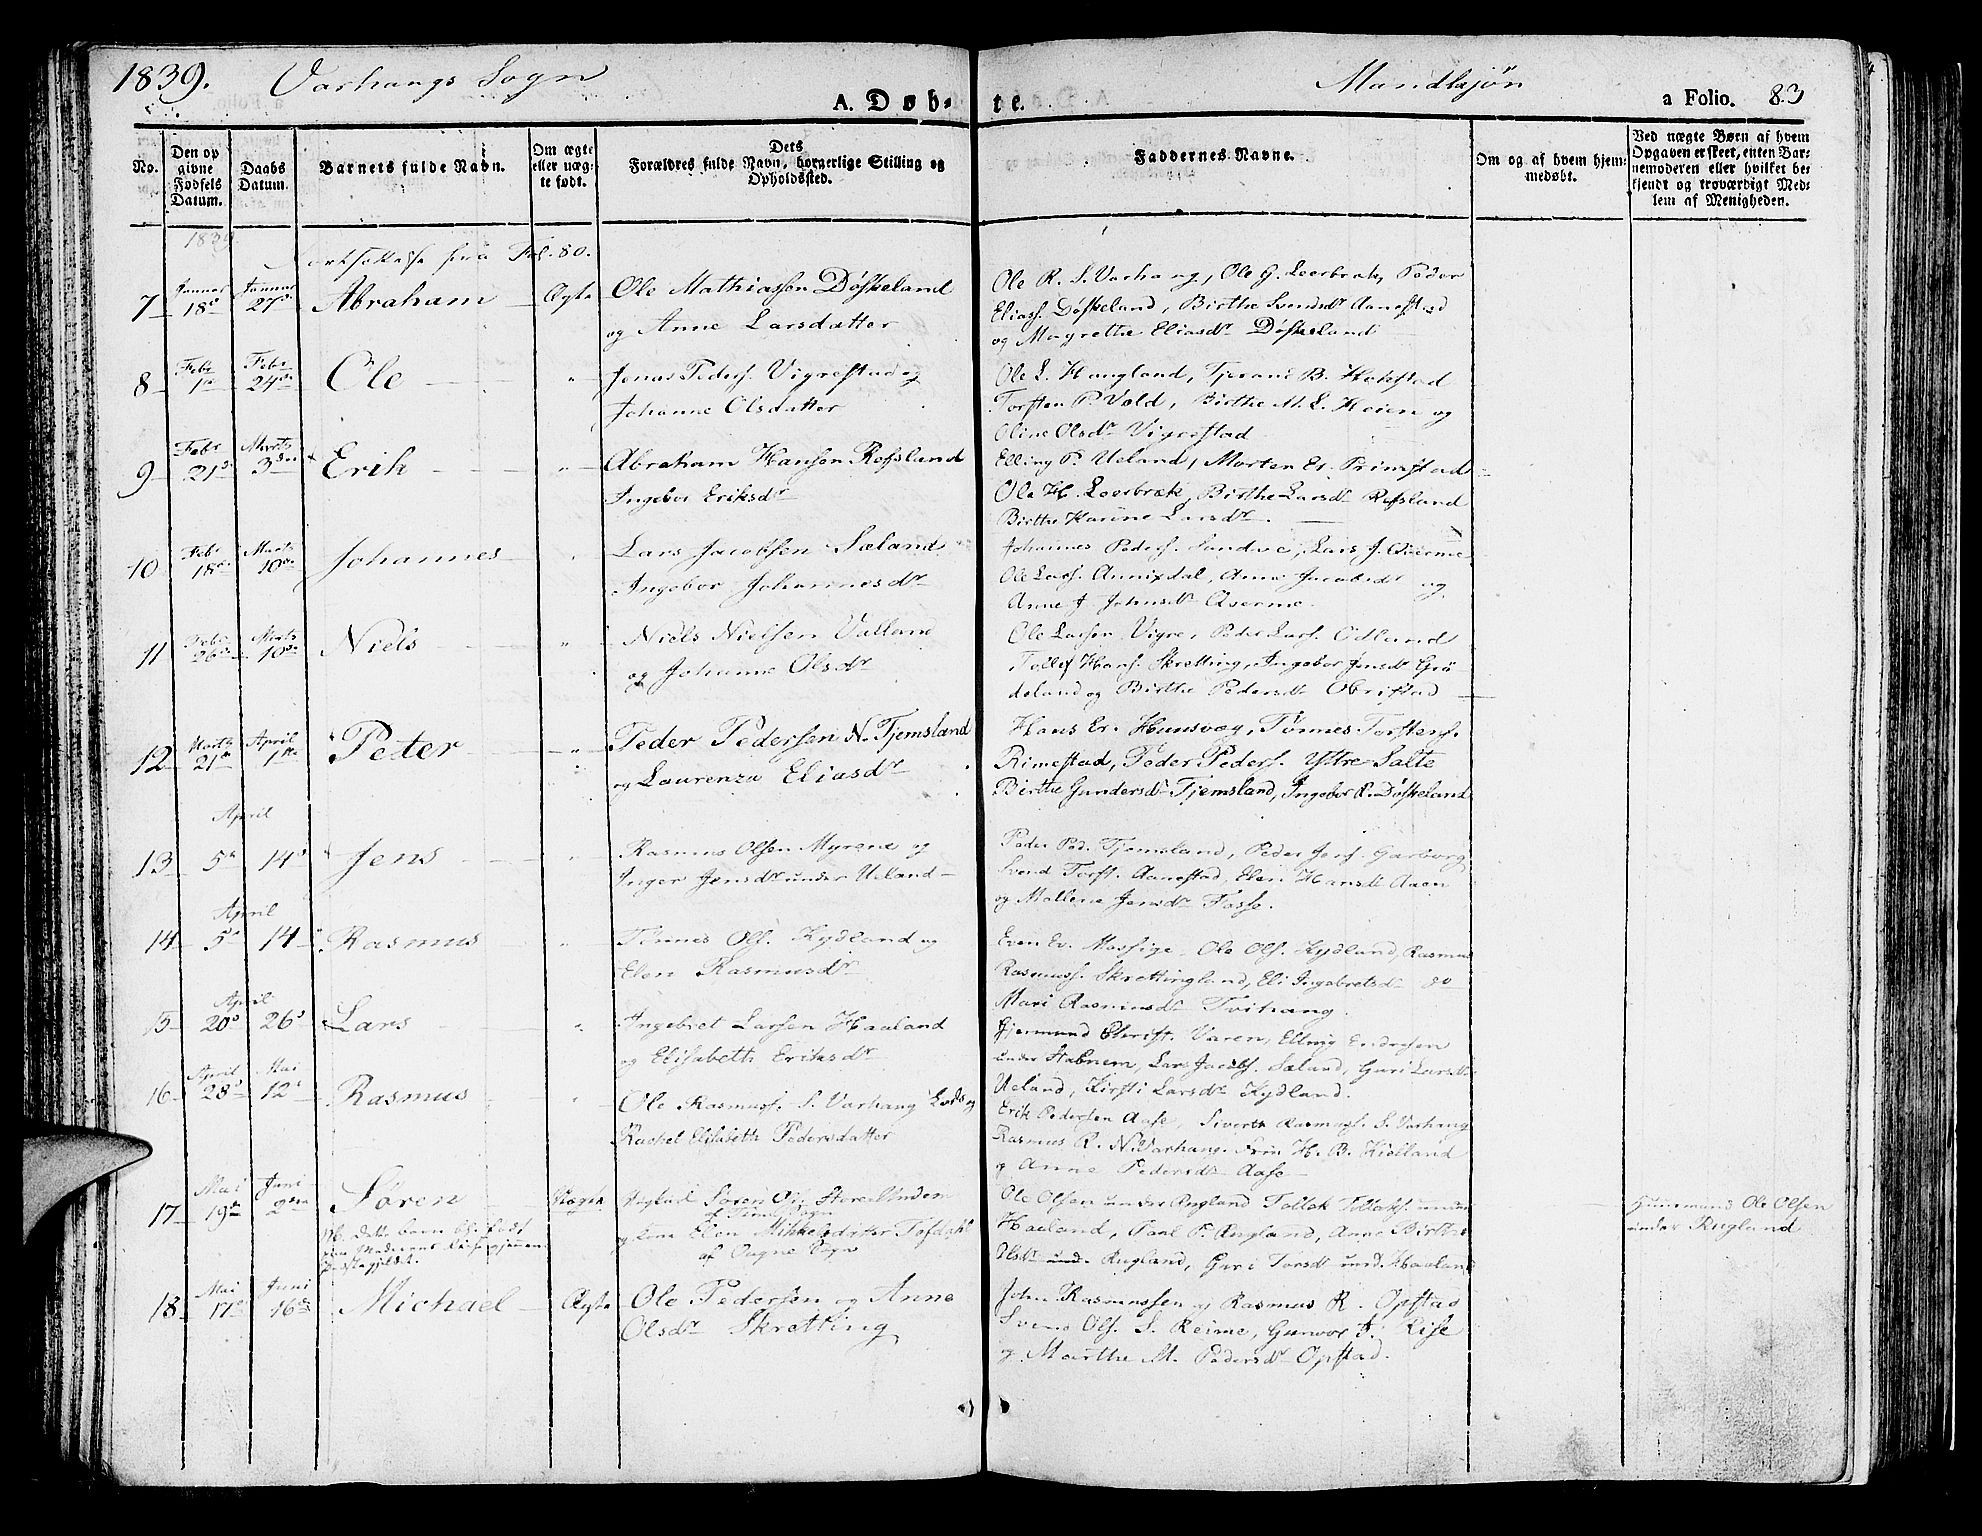 1839. Varhaugs Sogn Mandkjøn
A. Døb- te. a Folio. 83
No.
Den op
givne
Fødsels
Datum.
Daabs
Datum.
Barnets fulde Navn.
Om ægte
eller uæg-
te født.
Dets
Forældres fulde Navn, borgerlige Stilling og
Opholdssted.
Faddernes Navne.
Om og af hvem hjem-
medøbt.
Ved uægte Børn af hvem
Opgaven er skeet, enten Bar-
nemoderen eller hvilket be-
kjendt og troværdigt Med-
lem af Menigheden.
1839
Fol. 80.
7 Januar 18de Januar 27de Abraham Ægte
Ole Mathiassen Døskeland
og Anne Larsdatter
Ole R. S. Varhaug, Ole G. Leerbræk, Peder
Eliass. Døskeland, Birthe Svendsdr Aanestad
og Magrethe Eliasdr Døskeland
8 Febr 1te Febr 24de Ole "
Jonas Peders. Vigrestad og
Johanne Olsdatter
Ole L. Haugland, Tjeran B. Hobstad
Torsten P. Vold, Birthe M. L. Høien og
Oline Olsdr Vigrestad
9 Febr 21de Marts 3die Erik "
Abraham Hansen Refsland
Ingebor Eriksdr
Elling P. Ueland, Morten Er. Primstad
Ole H. Leerbræk, Birthe Larsdr Refsland
Birthe Karine Larsdr.
10 Febr 18de Marts 10de Johannes "
Lars Jacobsen Sæland
Ingebor Johannesdr
Johannes Peders. Sandve, Lars J. Qverme
Ole Lars. Annixdal, Anne Jacobsdr og
Anne J. Johnsdr Qverme.
11 Febr 26de Marts 10de Niels "
Niels Nielsen Valland
og Johanne Olsdr
Ole Larsen Vigre, Peder Lars. Odland
Tollef Hans. Skretting, Ingebor Jensdr Grø-
deland og Birthe Pedersdr Obrestad
12 Marts 21de April 1te Peter "
Peder Pedersen N. Tjemsland
og Laurenza Eliasdr
Hans Er. Huusvæg, Tønnes Torstens.
Rimestad, Peder Peders. Ystre Salte
Birthe Gundersdr Tjemsland, Ingebor R. Døskeland
April
13 5te 14de Jens "
Rasmus Olsen Myrene og
Inger Jensdr under Ueland
Peder Ped. Tjemsland, Peder Jens. Garborg
Svend Torst. Aanestad, Elen Hansdr Aaen
og Mallene Jensdr Fosse.
April
14 5te 14 Rasmus "
Tønnes Ols. Kydland og
Elen Rasmusdr
Even Ev. Mossige, Ole Ols. Kydland, Rasmus
Rasmuss. Skrettingland, Eli Ingebretsdr
Mari Rasmusdr Tvihaug.
April
15 20de 26de Lars "
Ingebret Larsen Haaland
og Elisabeth Eriksdr
Gjermund Christ. Varen, Elling Endresen
under Stabnem, Lars Jacobs. Sæland, Guri Larsdr
Ueland, Kirsti Larsdr Kydland.
16 April 28de Mai 12te Rasmus "
Ole Rasmuss. S. Varhaug og
Rachel Elisabeth Pedersdatter
Erik Pedersen Aase, Sivert Rasmuss. S. Varhaug
Rasmus R. N. Varhaug. H. B. Kielland
og Anne Pedersdr Aase
17 Mai 19de Juni 2den Søren Uægte
Søren Store Undem
af Time Sogn
Elen Mikkelsdatter
af Ougne Sogn
Ole Olsen under Rugland Tollak Tollaks. under
Haaland, Paal P. Rugland, Anne Birthe
Olsdr und. Rugland, Guri Torsdr und. Haaland
Huusmand Ole Olsen
under Rugland
18 Mai 17de Juni 16de Michael Ægte
Ole Pedersen og Anne
Olsdr Skretting
John Rasmussen og Rasmus R. Opstad
Svend Ols. S. Reime, Gunvor T. Rise
og Marthe M. Pedersdr Opstad.